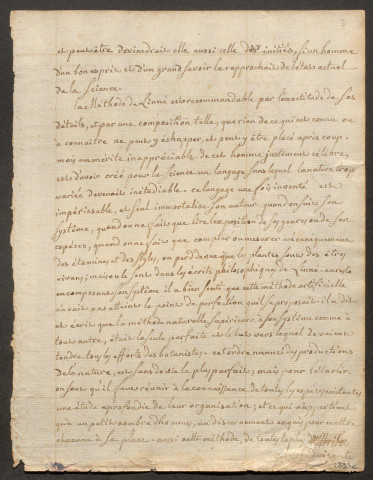 et peut être deviendrait elle aussi celle des initiés, si un homme
d'un bon esprit et d'un grand savoir la rapprochait de l'état actuel
de la Science.
La Méthode de Linné est recommandable par l'exactitude de ses
détails, et par une composition telle, que rien de ce qui est connu ou
a connaître ne peut y échapper, et peut y être placé après coup.
mais un mérite inappréciable de cet homme justement célèbre,
est d'avoir créé pour la science un langage sans lequel la nature trop
variée devenait inétudiable. Ce langage une fois inventé est
impérissable, et seul immortalise son auteur. quand on suit son
Système, quand on ne fait que lire l'exposition de ses genres, ou de ses
espèces, quand on ne fait que compter ou mesurer mécaniquement
des étamines et des styles, on perd de vue que les plantes sont des êtres
vivans; mais on le sent dans les écrits philosophiques de Linné: aureste
en composant son système il a bien senti que cette méthode artificielle
n'avait pas atteint le point de perfection qu'il se proposait: il a dit
et écrit que la méthode naturelle supérieure à son système comme à
tout autre, était la seule parfaite et le but vers lequel devaient
tendre tous les efforts des botanistes. cet ordre
de la nature, est sans doute le plus parfait; mais pour l'établir
on sent qu'il faut réunir à la connaissance de toutes les espèces existantes
une étude approfondie de leur organisation; et ce qui n'appartient
qu'à un petit nombre d'hommes, un discernement exquis pour mettre
chacune à sa place. aussi cette méthode, de toutes la plus